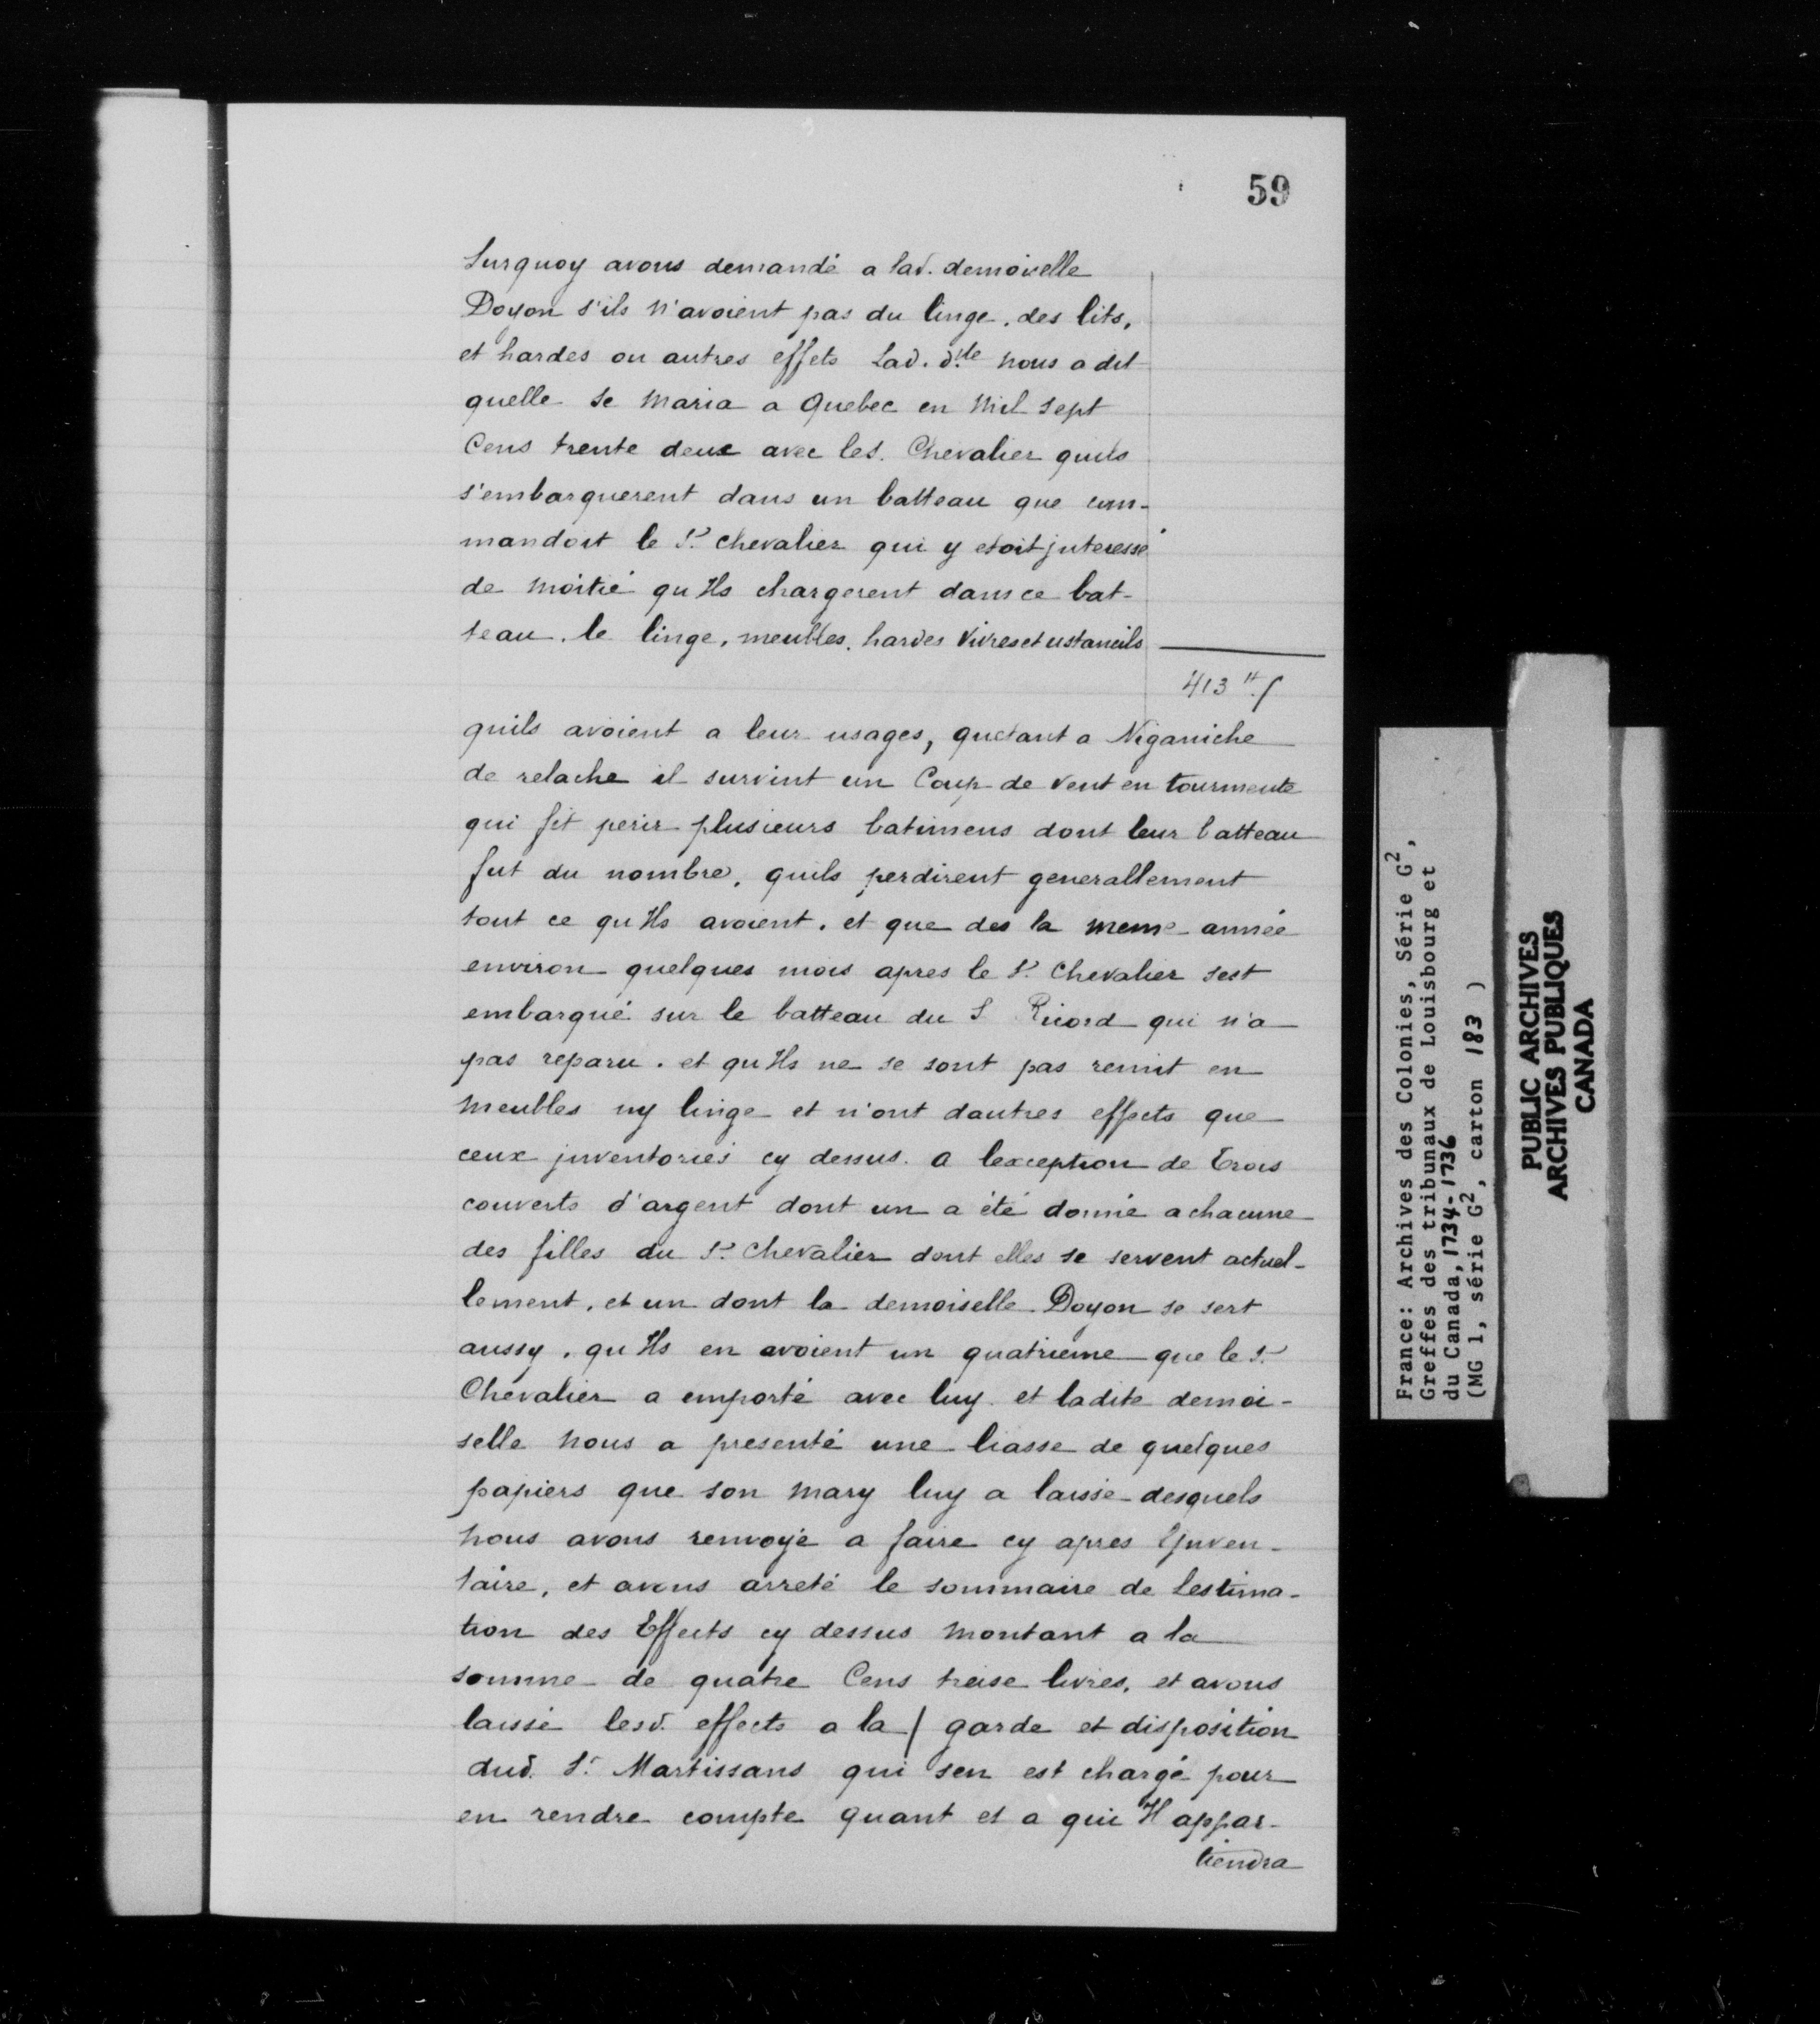 59
Surquoy avons demandé a lad. demoiselle
Doyon s'ils n'avoient pas du linge, des lits,
et hardes ou autres effets Lad. dlle nous a dit
quelle se maria a Quebec en mil sept
Cens trente deux avec led. Chevalier quils
s'embarquerent dans un batteau que com-
mandoit le Sr. chevalier qui y etoit jnteressé
de moitié qu Ils chargerent dans ce bat-
teau, le linge, meubles, hardes vivres et ustancils
413 ₶
quils avoient a leur usages, quetant a Niganiche
de relache il survint un Coup de vent en tourmente
qui fit perir plusieurs batimens dont leur batteau
fut du nombre, quils perdirent generallement
tout ce qu Ils avoient. et que des la meme année
environ quelques mois apres le Sr. Chevalier sest
embarqué sur le batteau du S Ricord qui n'a
pas reparu. et qu Ils ne se sont pas remit en
meubles ny linge et n'ont dautres effects que
ceux jnventoriés cy dessus. a lexception de trois
couverts d'argent dont un a été donné a chacune
des filles du Sr. Chevalier dont elles se servent actuel-
lement, et un dont la demoiselle Doyon se sert
aussy. qu Ils en avoient un quatrieme que le Sr.
Chevalier a emporté avec luy. et ladite demoi-
selle nous a presenté une liasse de quelques
papiers que son mary luy a laissé desquels
nous avons renvoyé a faire cy apres lJnven-
taire, et avons arreté le sommaire de Lestima-
tion des Effects cy dessus montant a la
somme de quatre Cens treise livres, et avons
laissé lesd. effects a la / garde et disposition
dud. Sr. Martissans qui sen est chargé pour
en rendre compte quant et a qui Il appar-
tiendra
France: Archives des Colonies, Série G2,
Greffes des tribunaux de Louisbourg et
du Canada, 1734-1736
(MG 1, série G2, carton 183 )
PUBLIC ARCHIVES
ARCHIVES PUBLIQUES
CANADA